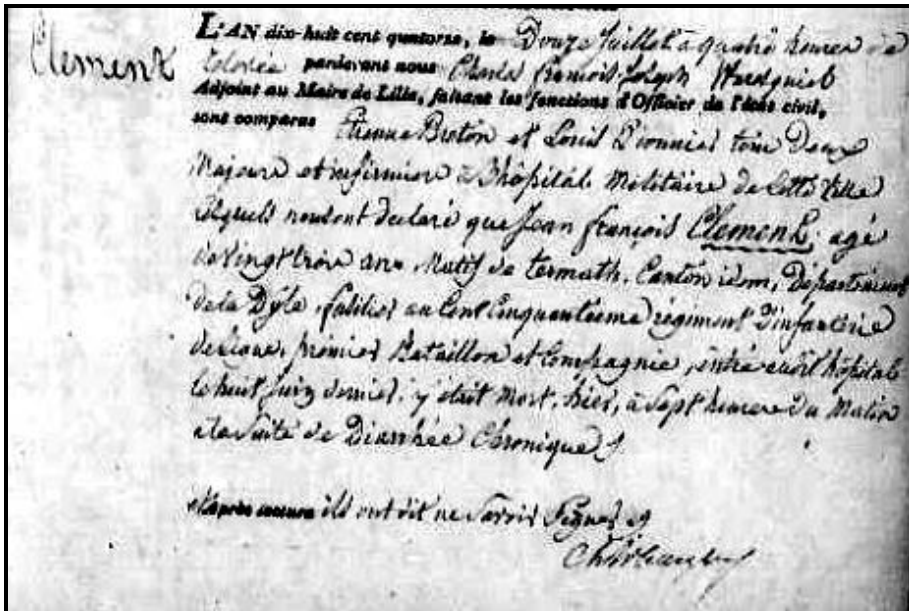 Clement
L'AN dix-huit cent quatorze, le Douze Juillet à quatre heures de
relevée pardevant nous Charles François Joseph
Adjoint au Maire de Lille, faisant les fonctions d'Officier de l'état civil,
sont comparus Etienne Breton et Louis Dionnier tous deux
Majeurs et infirmiers à l'hôpital Militaire de Cette Ville
lesquels nous ont déclaré que Jean françois Clement, agé
de vingt trois ans Natif de termath, Canton idem, Département
de la Dÿle, fusilier au Cent Cinquantième régiment D'infanterie
de Ligne, premier Bataillon et Compagnie, entré audit hôpital
le huit Juin dernier, y était Mort, hier, à Sept heures du Matin
à la Suite de Diarrhée Chronique
et après lecture ils ont dit ne Savoir Signer